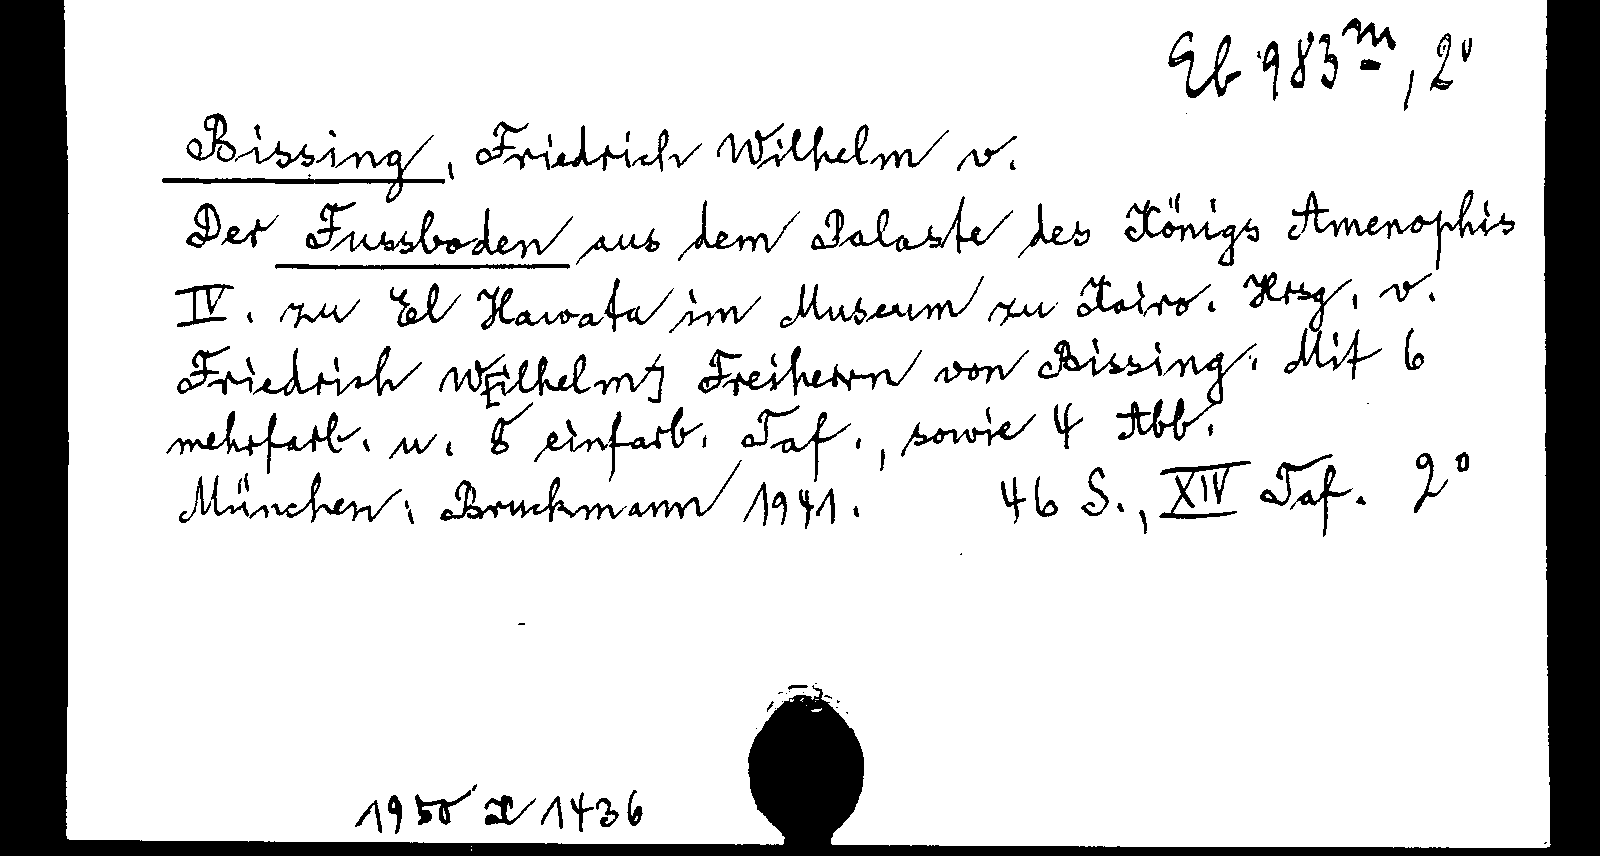 Eb 983ᵐ, 2°
Bissing, Friedrich Wilhelm v.
Der Fussboden aus dem Palaste des Königs Amenophis
IV. zu El Hawata im Museum zu Kairo. Hrsg. v.
Friedrich W[ilhelm] Freiherrn von Bissing. Mit 6
mehrfarb. u. 8 einfarb. Taf., sowie 4 Abb.
München: Bruckmann 1941. 46 S., XIV Taf. 2°
1950 1436